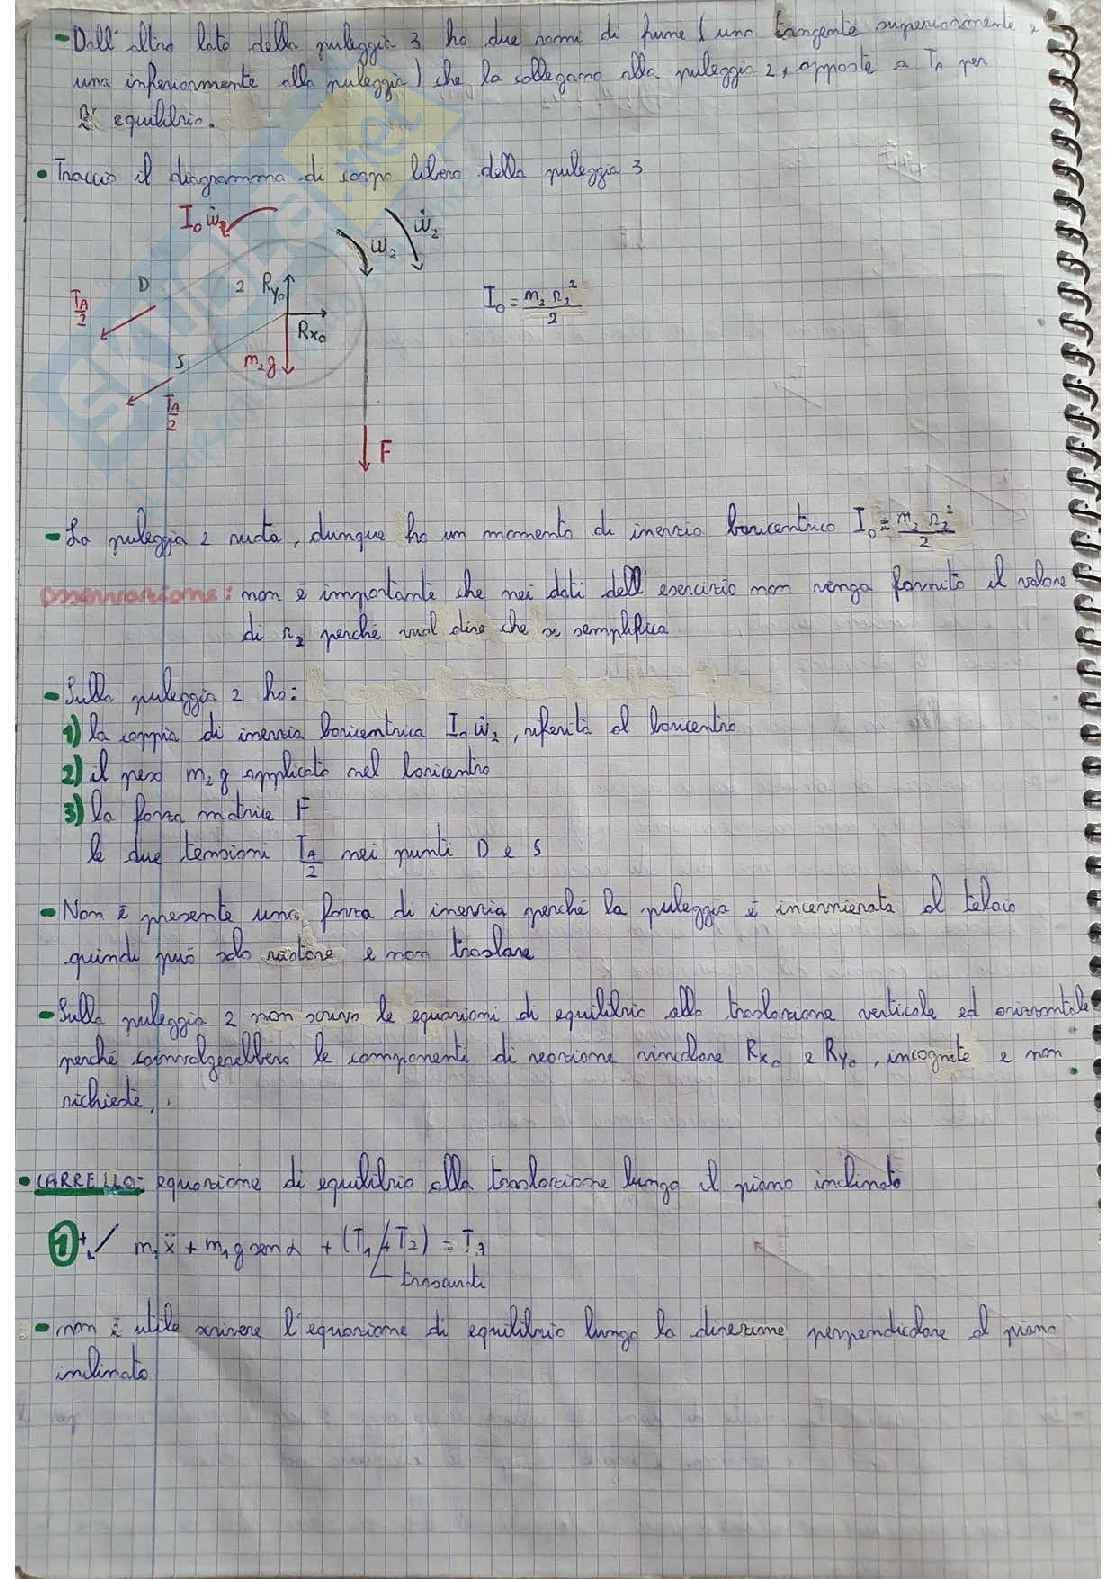 - Dall'altro lato della puleggia 3 ho due rami di fune (uno tangente superiormente e
uno inferiormente alla puleggia) che la collegano alla puleggia 2, opposte a T_A per
l'equilibrio.
• Traccio il diagramma di corpo libero della puleggia 3
I_0 ω̇_2
ω_2
ω̇_2
D
2
R_y0
T_A/2
R_x0
I_0 = m_2 r_2²/2
S
m_2 g
T_A/2
F
- La puleggia 2 ruota, dunque ho un momento di inerzia baricentrico I_0 = m_2 r_2²/2
Osservazione: non è importante che nei dati dell'esercizio non venga fornito il valore
di r_2 perché vuol dire che si semplifica
- Sulla puleggia 2 ho:
1) la coppia di inerzia baricentrica I_0 ω̇_2, riferita al baricentro
2) il peso m_2 g applicato nel baricentro
3) la forza motrice F
le due tensioni T_A/2 nei punti D e S
- Non è presente una forza di inerzia perché la puleggia è incernierata al telaio
quindi può solo ruotare e non traslare
- Sulla puleggia 2 non scrivo le equazioni di equilibrio alla traslazione verticale ed orizzontale
perché coinvolgerebbero le componenti di reazione vincolare R_x0 e R_y0, incognite e non
richieste.
• CARRELLO: equazione di equilibrio alla traslazione lungo il piano inclinato
1) + m_1 ẍ + m_1 g sen α + (T_1 + T_2) = T_A
trascurati
- non è utile scrivere l'equazione di equilibrio lungo la direzione perpendicolare al piano
inclinato